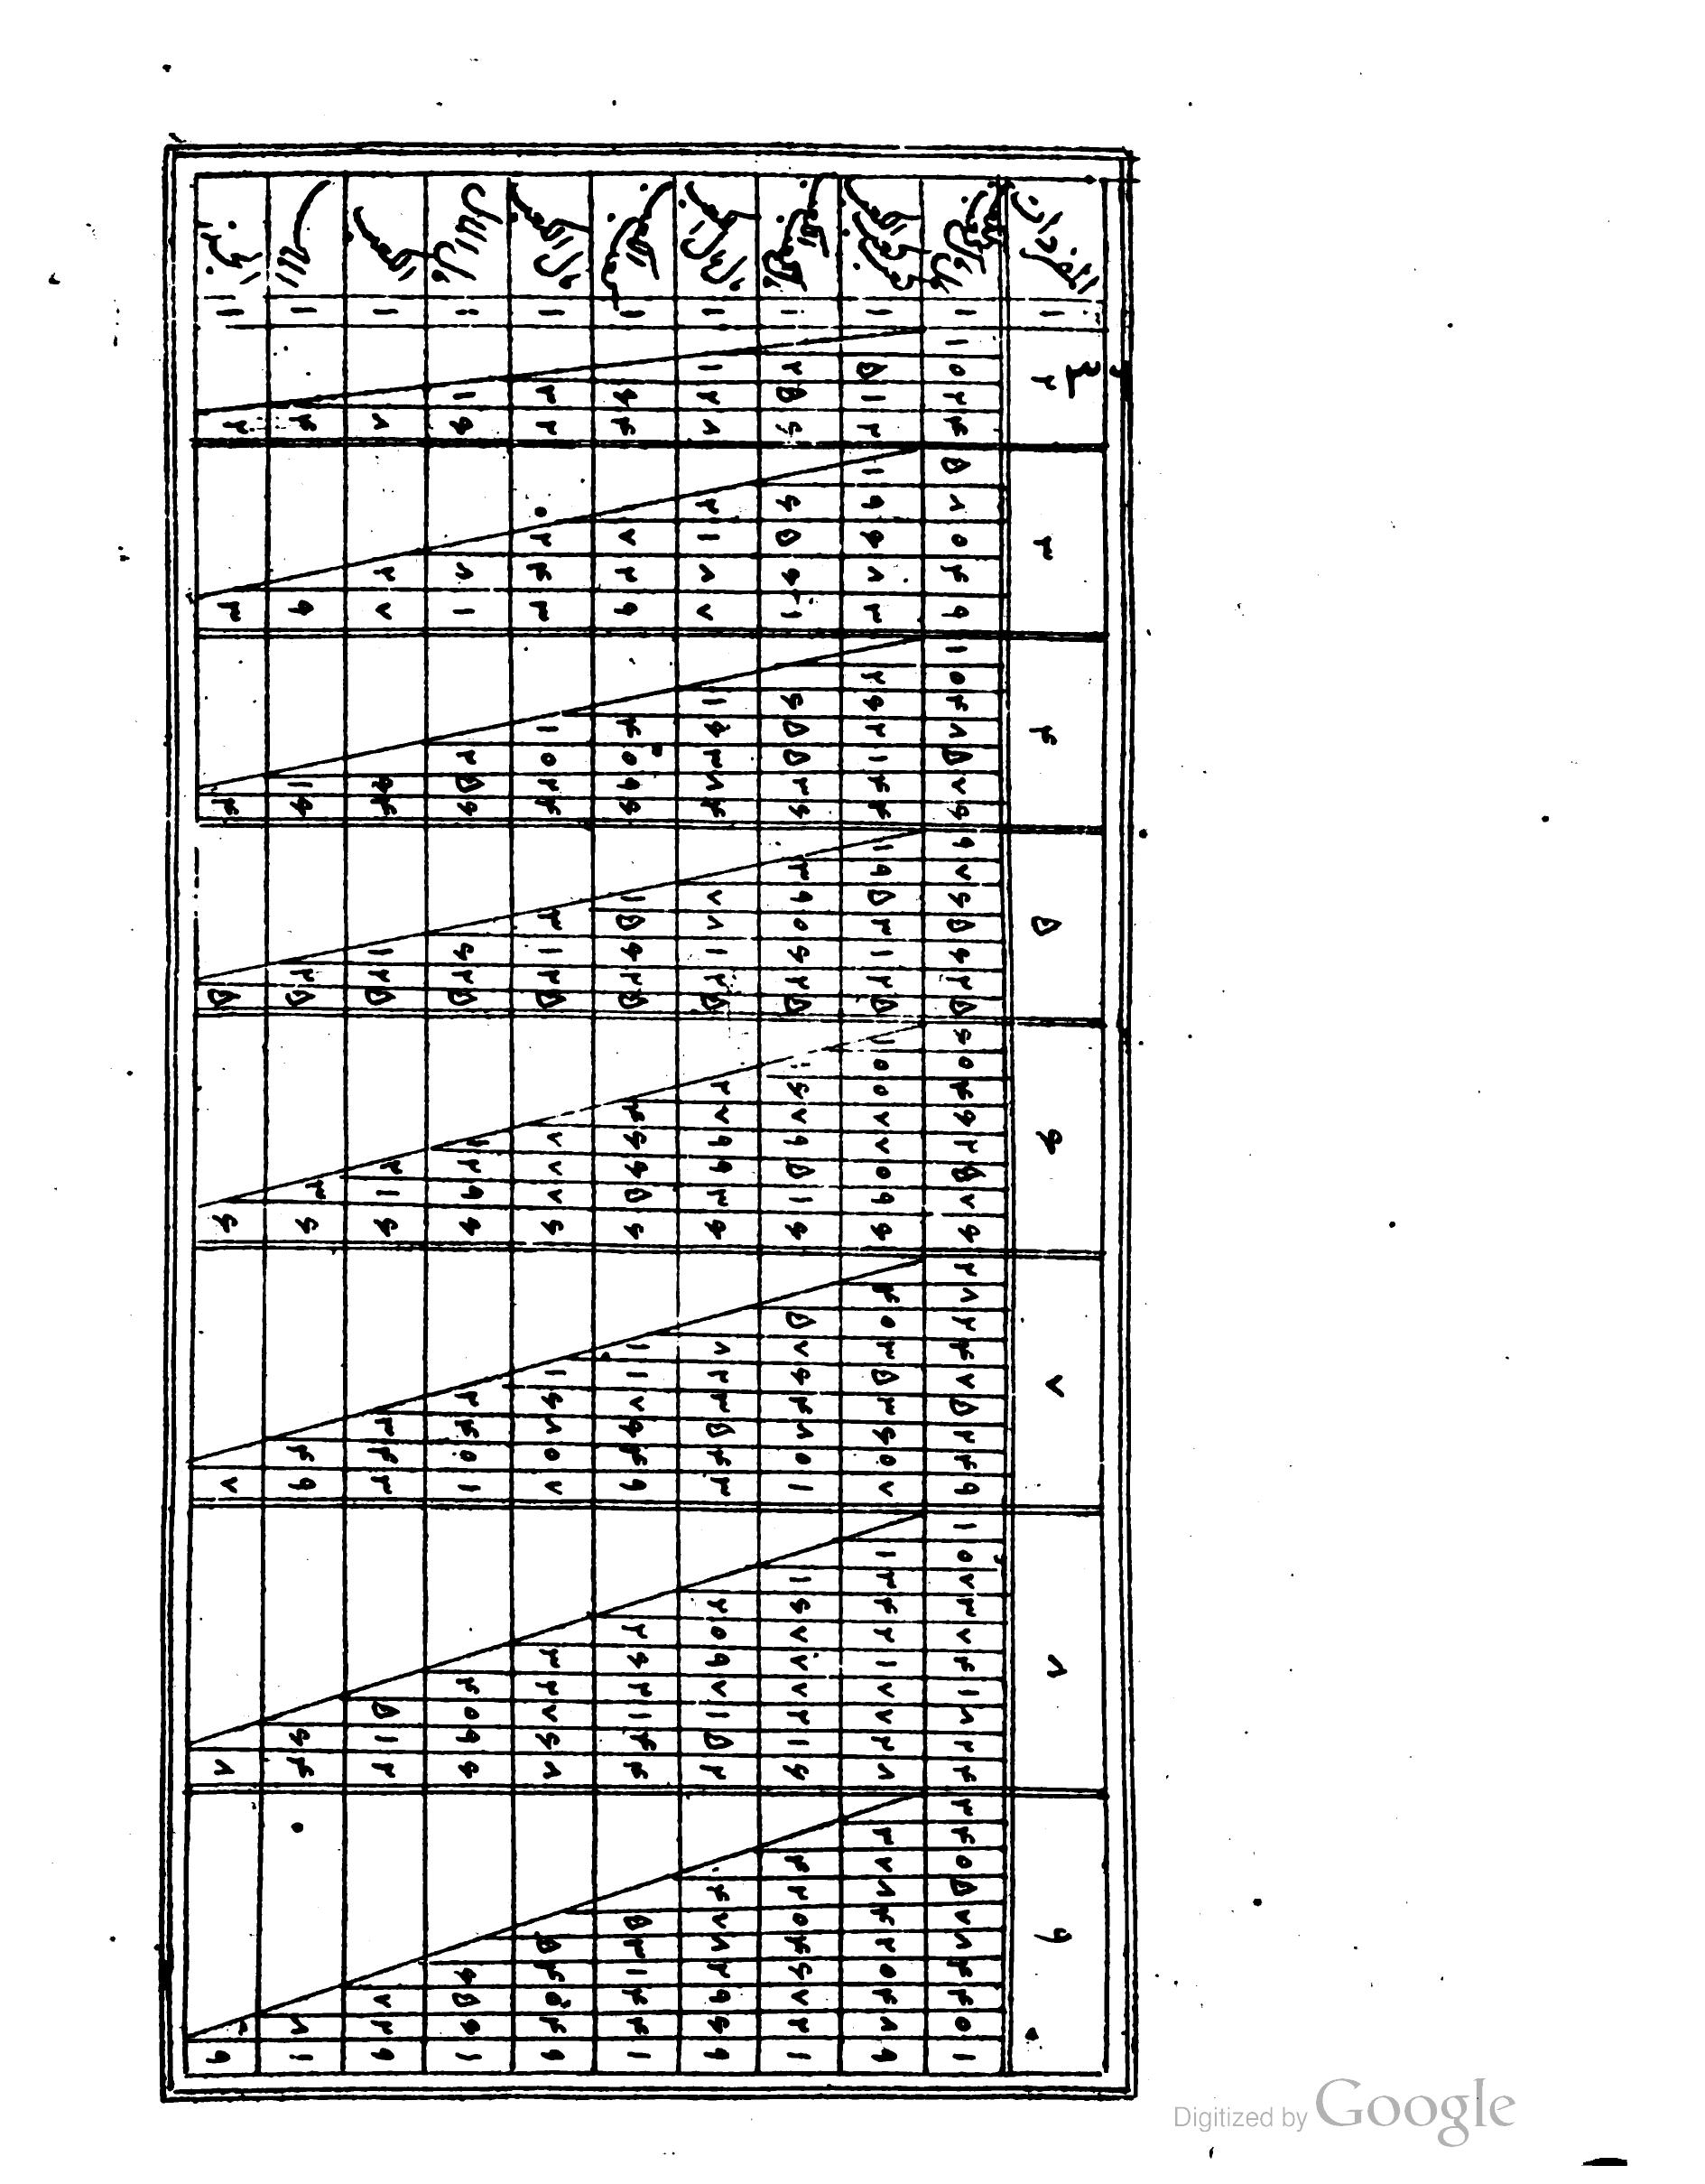 ١ ٢ ٣ ٤ ٥ ٦ ٧ ٨ ٩
١ ١٠٢٤ ٥٩٠٤٩ ١٠٤٨٥٧٦ ٩٧٦٥٦٢٥ ٦٠٤٦٦١٧٦ ٢٨٢٤٧٥٢٤٩ ١٠٧٣٧٤١٨٢٤ ٣٤٨٦٧٨٤٤٠١
١ ٥١٢ ١٩٦٨٣ ٢٦٢١٤٤ ١٩٥٣١٢٥ ١٠٠٧٧٦٩٦ ٤٠٣٥٣٦٠٧ ١٣٤٢١٧٧٢٨ ٣٨٧٤٢٠٤٨٩
١ ٢٥٦ ٦٥٦١ ٦٥٥٣٦ ٣٩٠٦٢٥ ١٦٧٩٦١٦ ٥٧٦٤٨٠١ ١٦٧٧٧٢١٦ ٤٣٠٤٦٧٢١
١ ١٢٨ ٢١٨٧ ١٦٣٨٤ ٧٨١٢٥ ٢٧٩٩٣٦ ٨٢٣٥٤٣ ٢٠٩٧١٥٢ ٤٧٨٢٩٦٩
كعب الكعب ١ ٦٤ ٧٢٩ ٤٠٩٦ ١٥٦٢٥ ٤٦٦٥٦ ١١٧٦٤٩ ٢٦٢١٤٤ ٥٣١٤٤١
مال الكعب ١ ٣٢ ٢٤٣ ١٠٢٤ ٣١٢٥ ٧٧٧٦ ١٦٨٠٧ ٣٢٧٦٨ ٥٩٠٤٩
مال المال ١ ١٦ ٨١ ٢٥٦ ٦٢٥ ١٢٩٦ ٢٤٠١ ٤٠٩٦ ٦٥٦١
الكعب ١ ٨ ٢٧ ٦٤ ١٢٥ ٢١٦ ٣٤٣ ٥١٢ ٧٢٩
المال ١ ٤ ٩ ١٦ ٢٥ ٣٦ ٤٩ ٦٤ ٨١
١ ٢ ٣ ٤ ٥ ٦ ٧ ٨ ٩
Digitized by Google